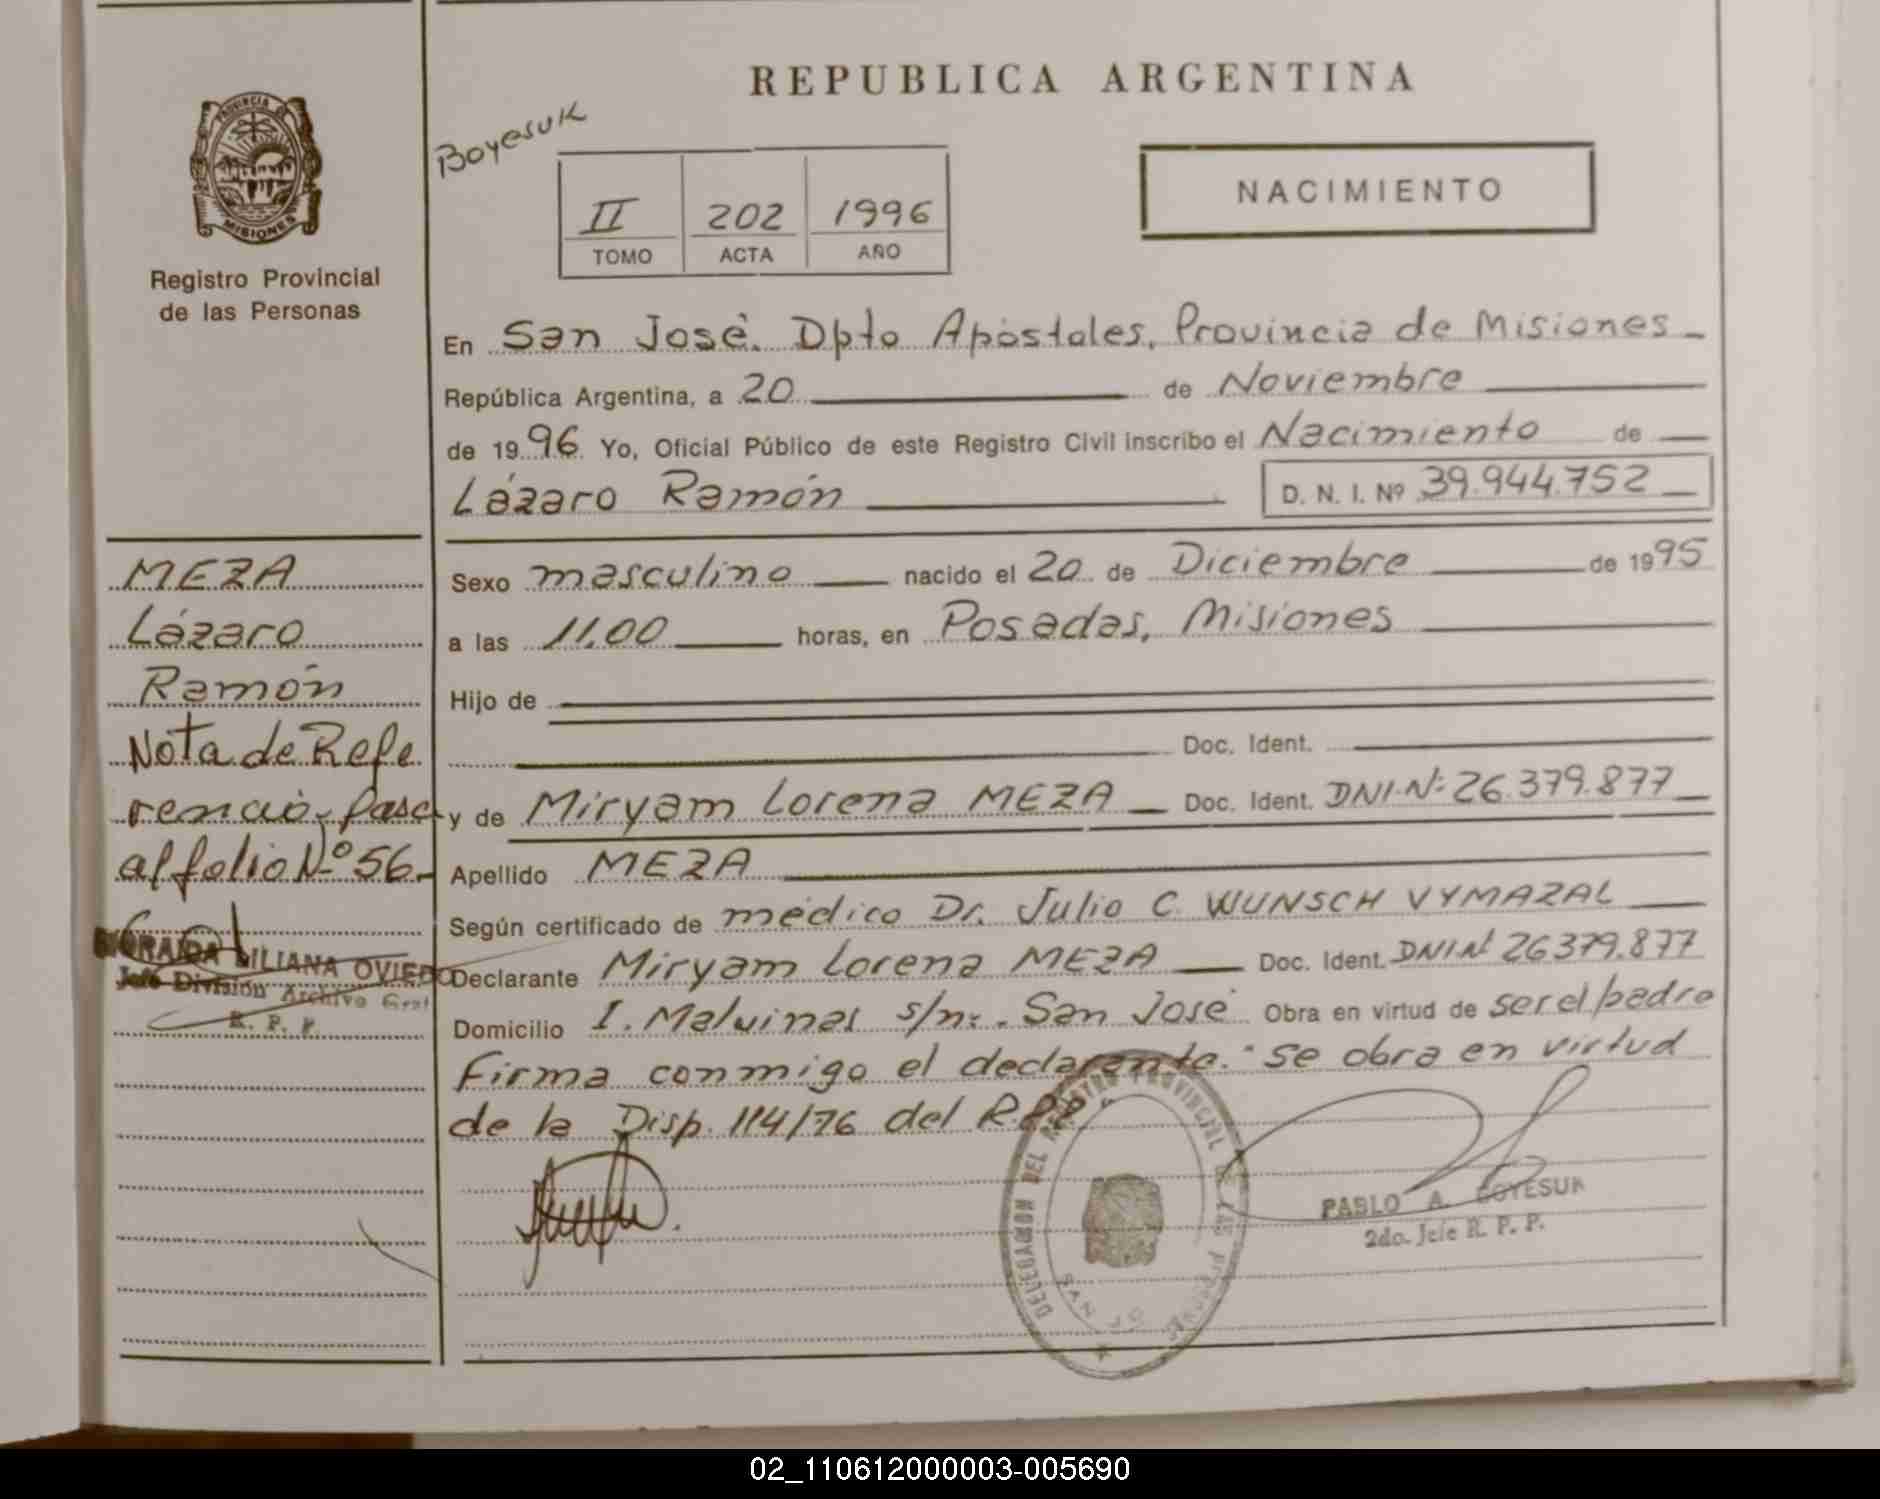 REPUBLICA ARGENTINA
Boyesuk
PROVINCIA DE
MISIONES
Registro Provincial
de las Personas
II 202 1996
TOMO ACTA AÑO
NACIMIENTO
En San José. Dpto Apóstoles, Provincia de Misiones
República Argentina, a 20 de Noviembre
de 1996 Yo, Oficial Público de este Registro Civil inscribo el Nacimiento de
Lázaro Ramón D. N. I. Nº 39.944.752
Sexo masculino nacido el 20 de Diciembre de 1995
a las 11,00 horas, en Posadas, Misiones
Hijo de
Doc. Ident.
y de Miryam Lorena MEZA Doc. Ident. DNI.Nº 26.379.877
Apellido MEZA
Según certificado de médico Dr. Julio C. WUNSCH VYMAZAL
Declarante Miryam Lorena MEZA Doc. Ident. DNI Nº 26379.877
Domicilio I. Malvinas s/nº. San José Obra en virtud de ser el padre
Firma conmigo el declarante. "Se obra en virtud
de la Disp. 114/76 del R.P.P."
MEZA
Lázaro
Ramón
Nota de Refe
rencia, pasa
al folio Nº 56.
LILIANA OVIEDO
Jefe División Archivo Gral
R. P. P.
DELEGACION DEL REGISTRO PROVINCIAL DE LAS PERSONAS
SAN JO
PABLO A. BOYESUK
2do. Jefe R. P. P.
02_110612000003-005690